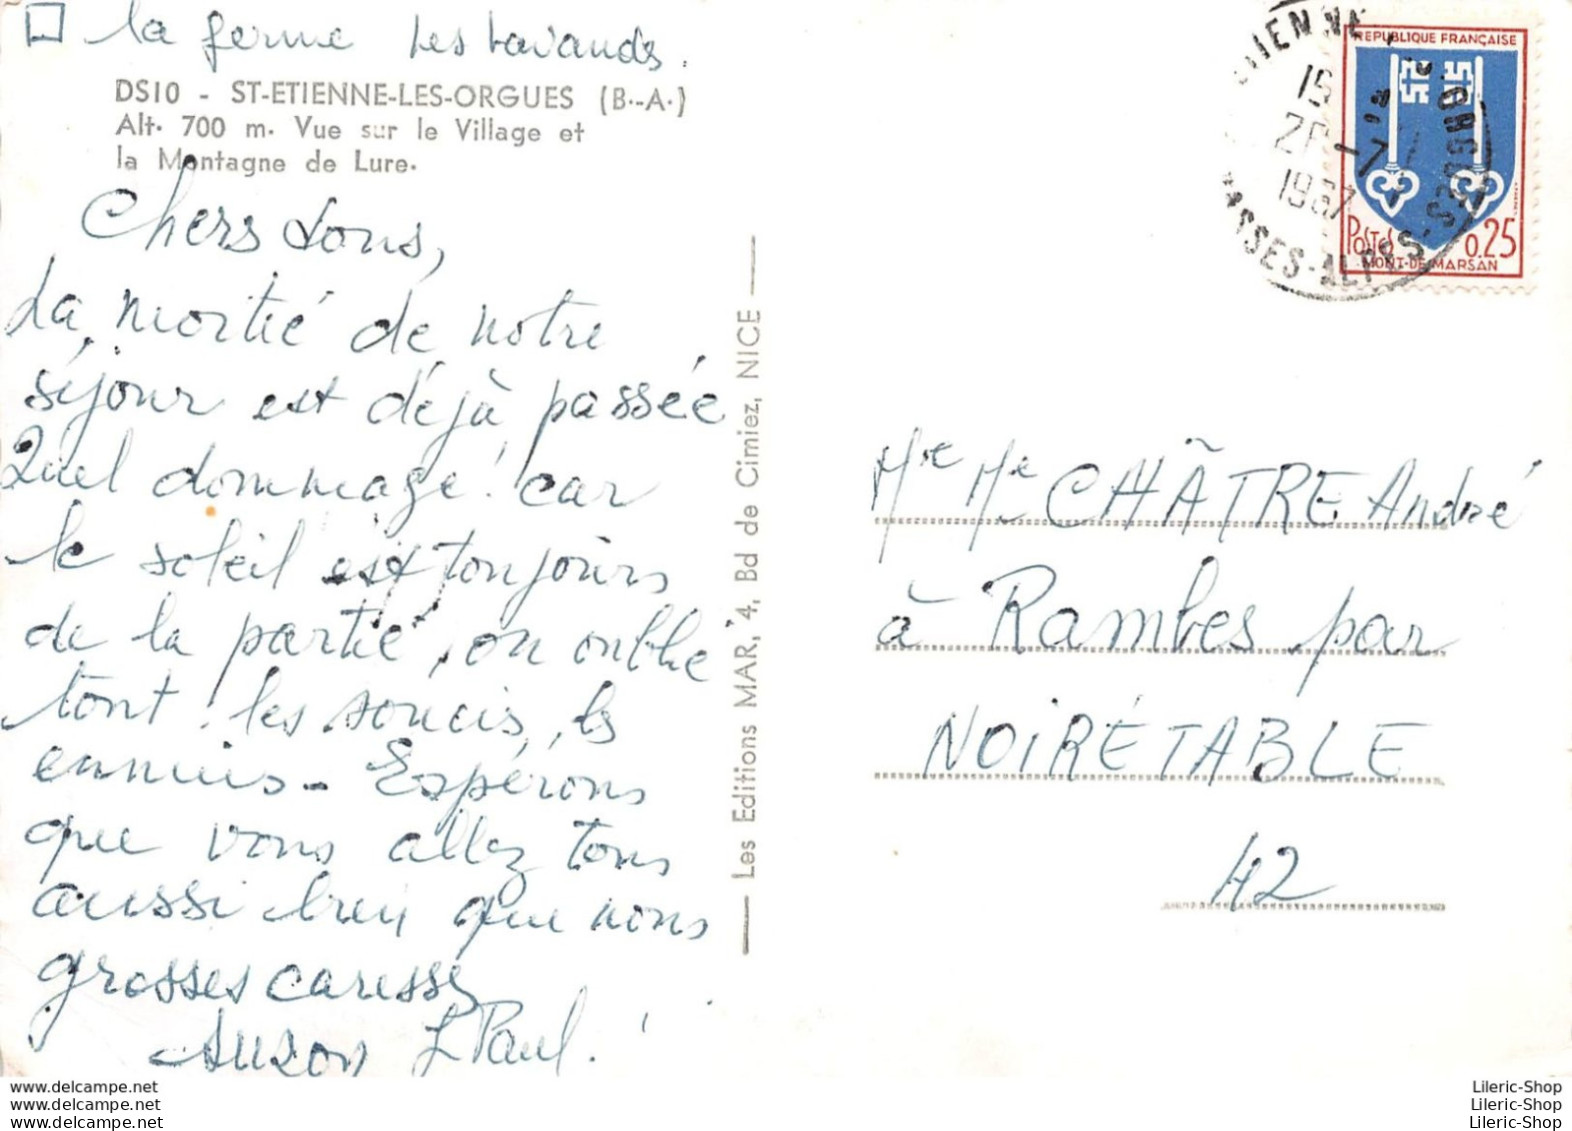 la ferme les lavandes.
DS10 - ST-ETIENNE-LES-ORGUES (B.-A.)
Alt. 700 m. Vue sur le Village et
la Montagne de Lure.
Chers tous,
La moitié de notre
séjour est déjà passée
Quel dommage! car
le soleil est toujours
de la partie, on oublie
tout! les soucis, les
ennuis - Espérons
que vous allez tous
aussi bien que nous
grosses caresses
Paul!
Les Editions MAR, 4, Bd de Cimiez, NICE
REPUBLIQUE FRANÇAISE
POSTES 0,25
MONT-DE-MARSAN
1967
BASSES-ALPES
Mr Me CHÂTRE André
à Rambes par
NOIRÉTABLE
42
www.delcampe.net
www.delcampe.net
www.delcampe.net
Lileric-Shop
Lileric-Shop
Lileric-Shop